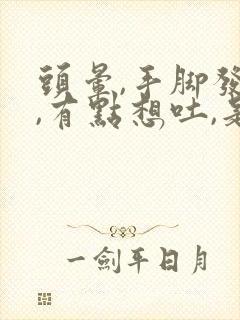 頭暈,手脚發
,有點想吐,是
一劍平日月